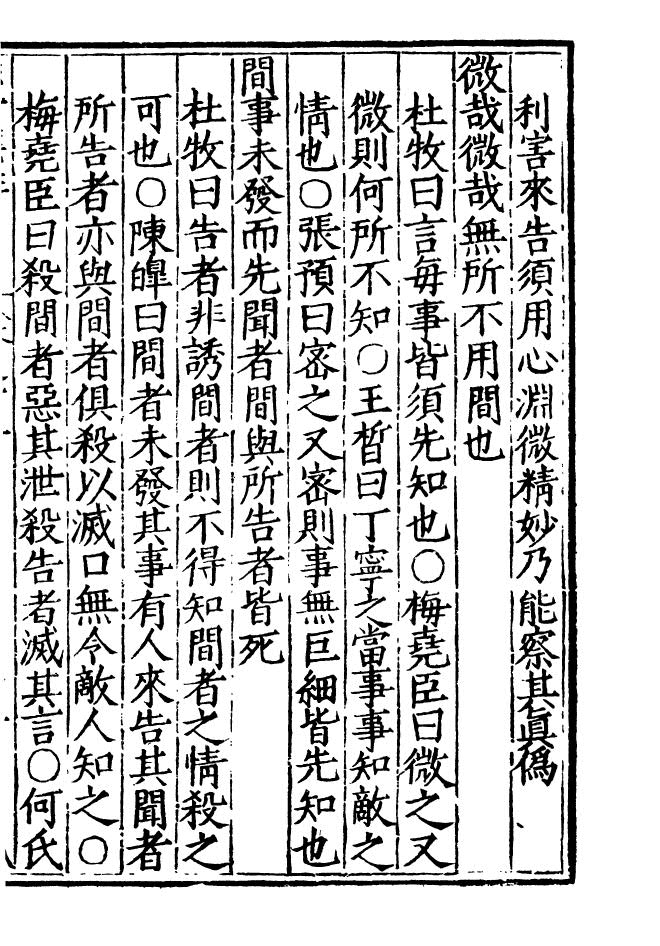 利害來告須用心淵微精妙乃能察其真僞
微哉微哉無所不用間也
杜牧曰言每事皆須先知也○梅堯臣曰微之又
微則何所不知○王晳曰丁寧之當事事知敵之
情也○張預曰密之又密則事無巨細皆先知也
間事未發而先聞者間與所告者皆死
杜牧曰告者非誘間者則不得知間者之情殺之
可也○陳皥曰間者未發其事有人來告其聞者
所告者亦與間者俱殺以滅口無令敵人知之○
梅堯臣曰殺間者惡其泄殺告者滅其言○何氏